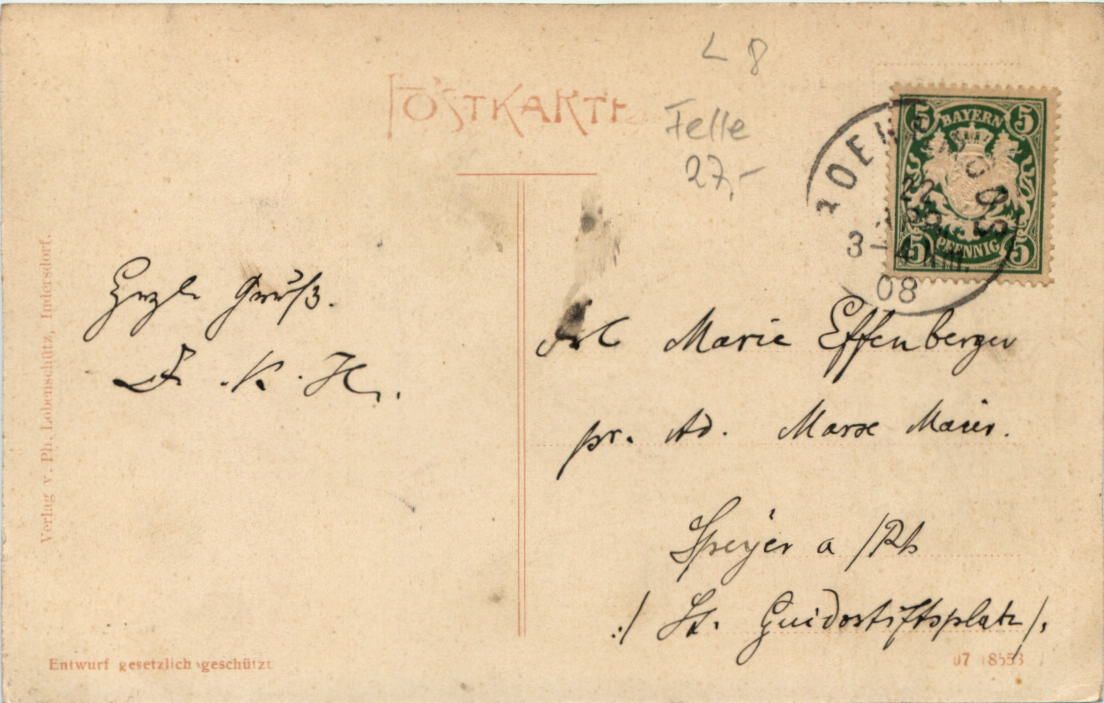 L 8
POSTKARTE
Felle
27,-
5 BAYERN 5
5 PFENNIG 5
ROEHRMOOS
3-4 Nm.
08
Herzl. Gruß.
F. K. H.
Frl Marie Effenberger
pr. Ad. Marx Maier.
Speyer a/Rh
./ St. Guidostiftsplatz /.
Verlag v. Ph. Lobenschütz, Indersdorf.
Entwurf gesetzlich geschützt
07 18553